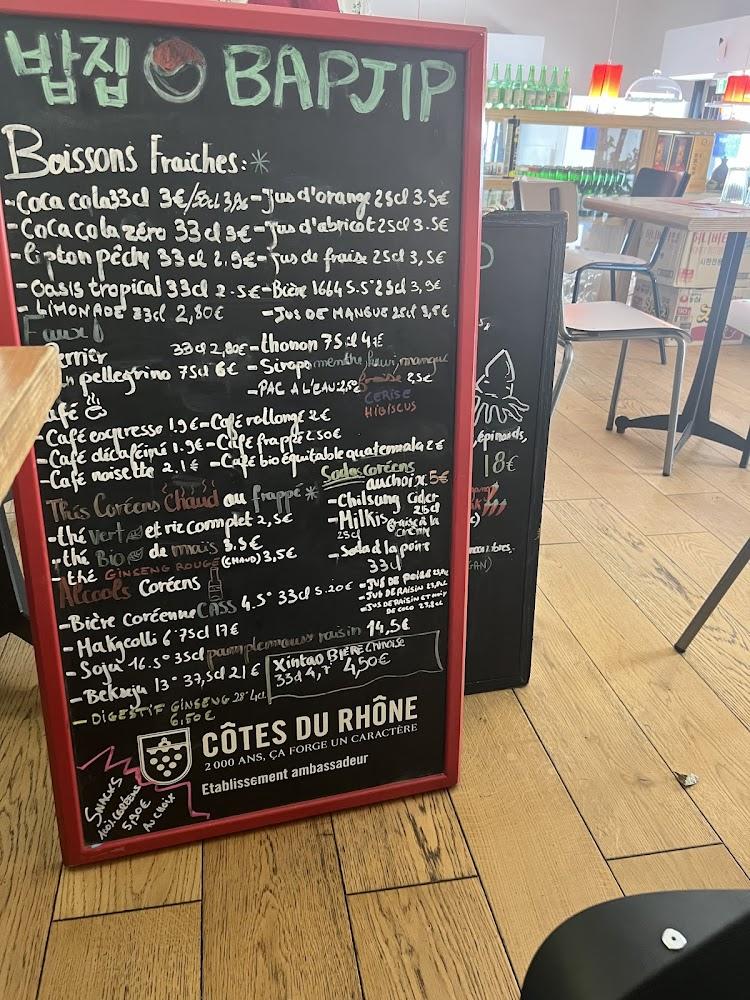 밥집 BAPJIP
Boissons Fraiches:*
-Coca cola 33cl 3€/50cl
-Coca cola zéro 33cl 3€
-Lipton pêche 33cl 2.9€
-Oasis tropical 33cl 2.5€
-LIMONADE 33cl 2,80€
-Jus d'orange 25cl 3.5€
-Jus d'abricot 25cl 3.5€
-Jus de fraise 25cl 3,5€
-Bière 1664 5.5° 25cl 3,9€
-JUS DE MANGUE 25cl 3,5€
Eaux
Perrier 33cl 2,80€
pellegrino 75cl 6€
-thonon 75cl 4€
-Sirops menthe, kiwi, mangue
fraise 2,5€
CERISE
HIBISCUS
-PAC A L'EAU: 2,5€
Café
-Café expresse 1.9€
-Café décaféiné 1.9€
-Café noisette 2.1€
-Café rollongé 2€
-Café frappé 2.50€
-Café bio équitable quatemala 2€
Thés Coréens Chaud ou frappé*
-thé vert et riz commplet 2,5€
-thé Bio de maïs 3.5€
-thé GINSENG ROUGE (CHAUD) 3,5€
Sodas coréens
au choix 5€
-Chilsung Cider
25cl
-Milkis
25cl
-Soda à la poire
33cl
-JUS DE POIRE
-JUS DE RAISIN
-JUS DE RAISIN ET NOIX
DE COCO
Alcools Coréens
-Bière Coréenne CASS 4.5° 33cl 5.20€
-Makgeolli 6° 75cl 17€
-Soju 16.5° 35cl pamplemousse raisin 14,5€
-Bekseju 13° 37,5cl 21€
-DIGESTIF GINSENG 28° 4cl
6,50€
Xintao BIÈRE Chinoise
33cl 4,7° 4,50€
CÔTES DU RHÔNE
2 000 ANS, ÇA FORGE UN CARACTÈRE
Etablissement ambassadeur
SNACKS
100% CORÉENS
5,90€
AU CHOIX
épinards,
18€